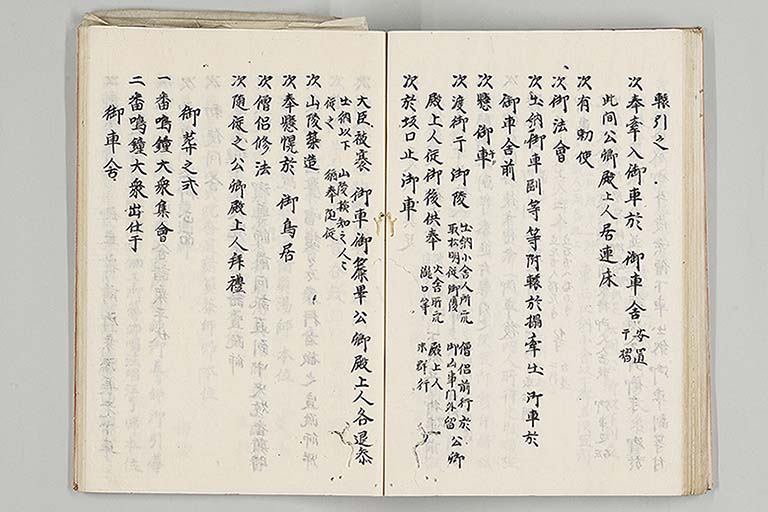 轅引之
次奉牽入御車於　御車舎 安置于榻
此间公卿殿上人居連床
次有勅使
次御法會
次出納御車副等等附轅於榻牽出御車於
御車舎前
次懸御車
次渡御于御陵 出納小舎人所衆取松明従御後 火舎所衆瀧口等 僧侶前行於御山車門外留公卿
殿上人従御後供奉 殿上人末群行
次於坂口止御車
大臣被褰　御車御簾畢公卿殿上人各退去
出納以下従之 山陵検知之人々猶奉随従
次山陵築造
次奉懸幌於　御鳥居
次僧侶修法
次随従之公卿殿上人拜禮
御葬之式
一番鳴鐘大衆集會
二番鳴鐘大衆出仕于
御車舎